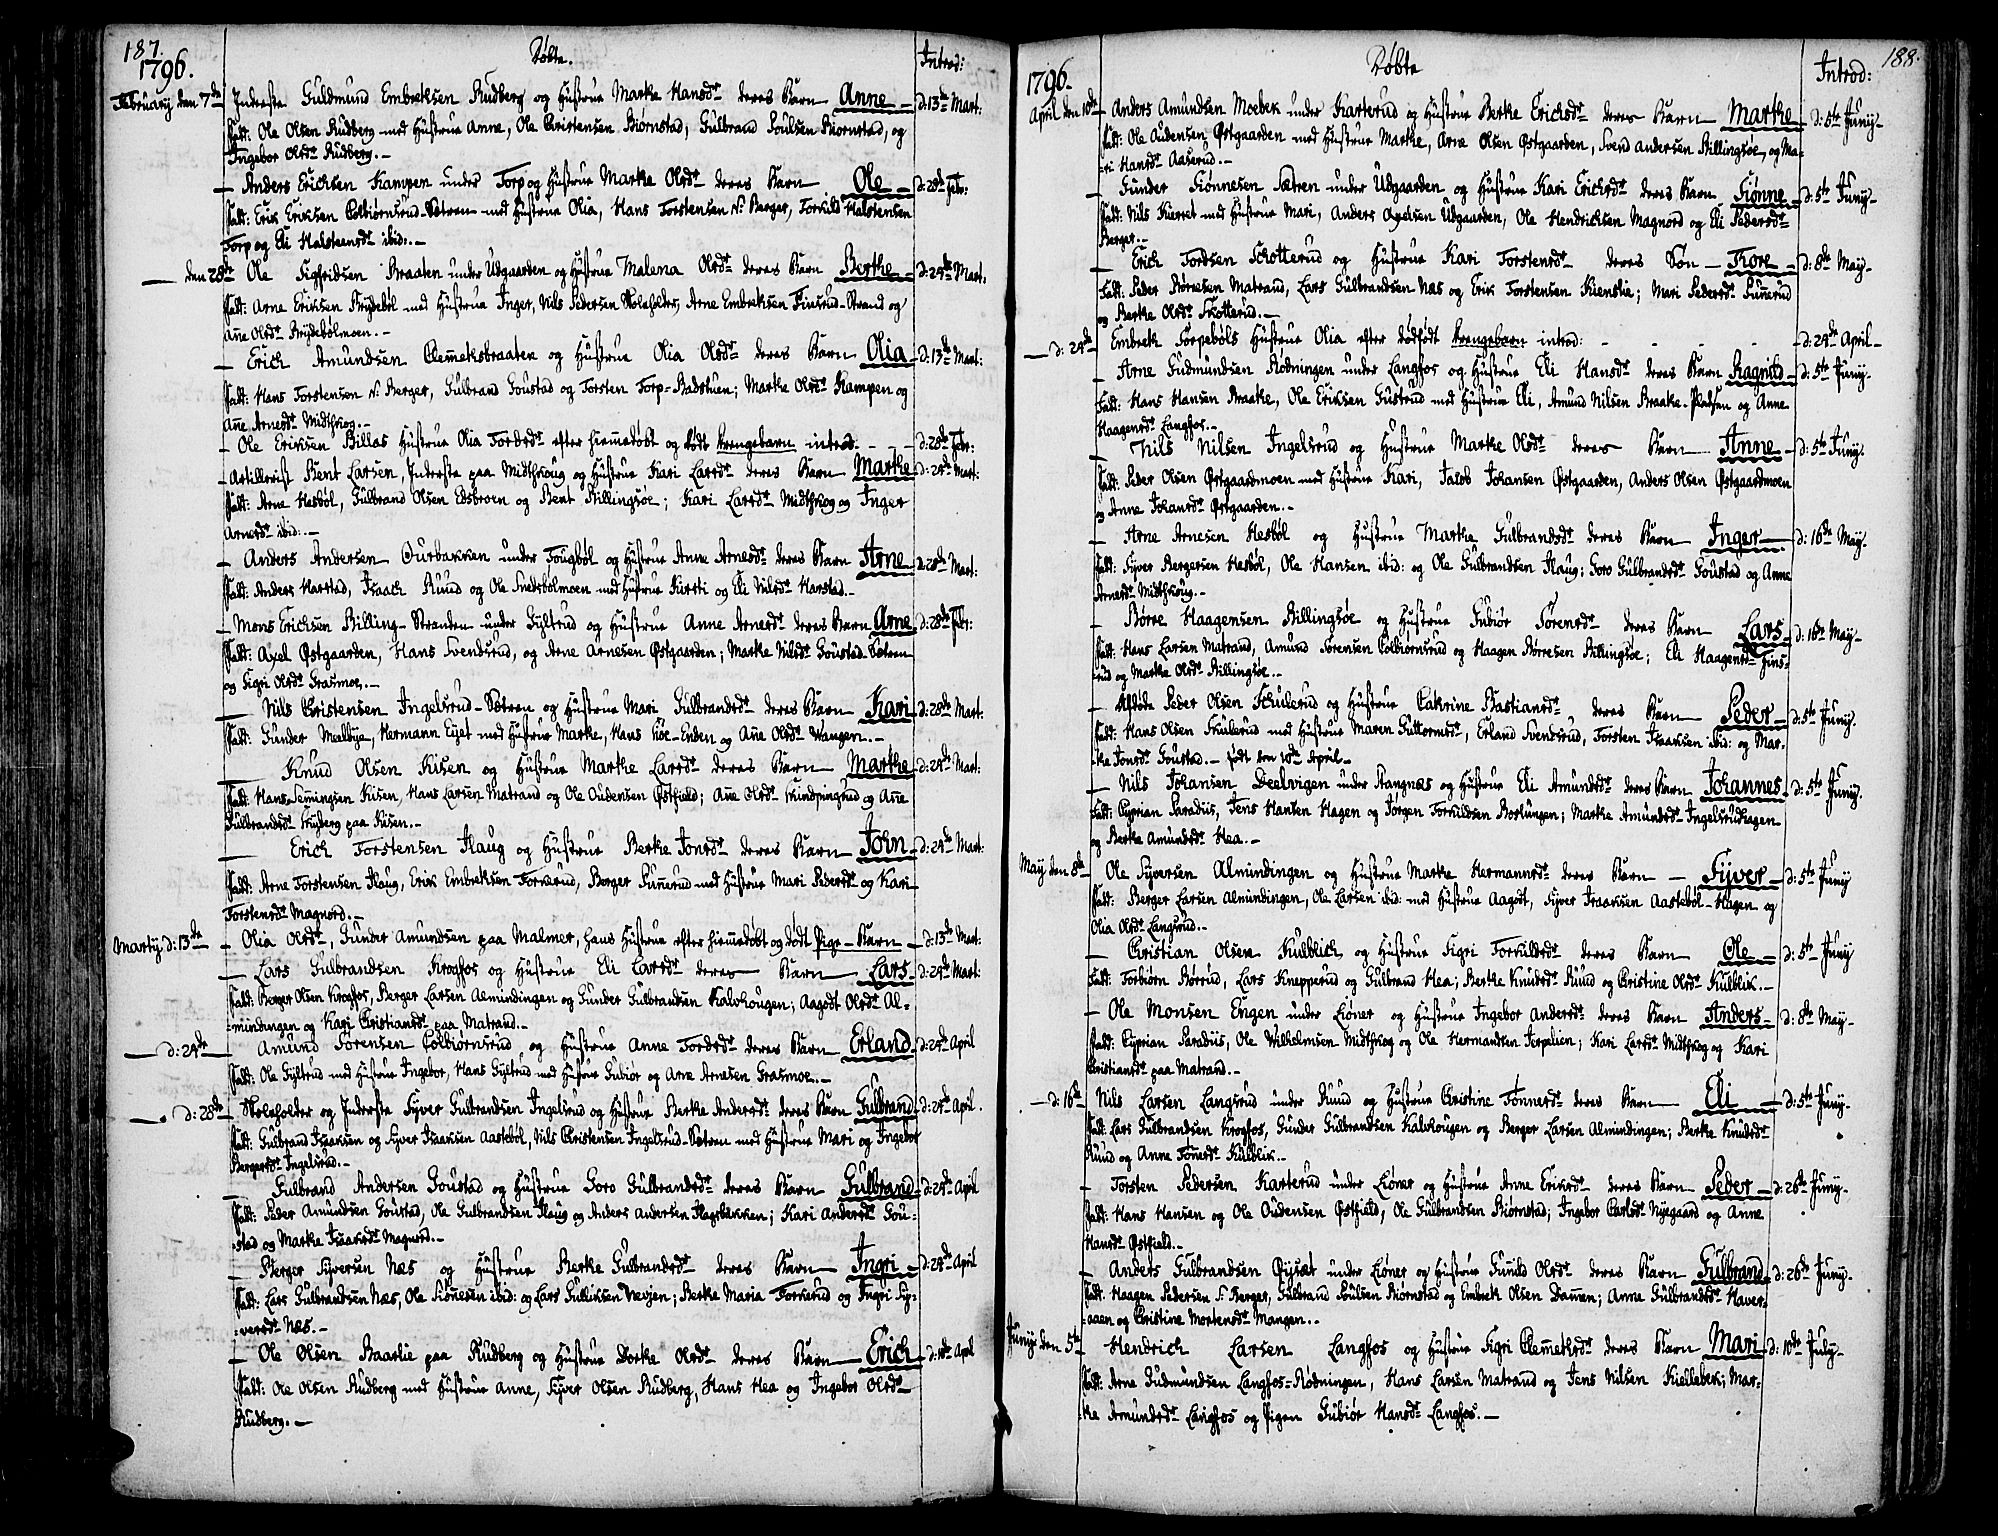 187.
1796.
Döbte.
Introd:
February den 7de Inderste Guldmund Embretsen Rudberg og Hustrue Marthe Hansdr deres Barn Anne d: 13de Mart:
Fadd: Ole Olsen Rudberg med Hustrue Anne, Ole Christensen Biörnstad, Gulbrand Poulsen Biornstad, og
Ingebor Olsdr Rudberg.
Anders Erichsen Kampen under Torp og Hustrue Marthe Olsdr deres Barn Ole d: 28de Febr:
Fadd: Erik Eriksen Colbiörnsrud-Sætren med Hustrue Olia, Hans Torstensen N: Berger, Torkild Halstensen
Torp og Eli Halsteensdr ibid:
den 28de Ole Sigfridsen Braaten under Udgaarden og Hustrue Malena Olsdr deres Barn Berthe d: 24de Mart.
Fadd: Arne Eriksen Brydeböl med Hustrue Inger, Nils Pedersen Skoleholder, Arne Embretsen Finsrud-Strand og
Añe Olsdr Brydebölmoen.
Erich Amundsen Clemmetsbraaten og Hustrue Olia Olsdr deres Barn Olia d: 13de Mart:
Fadd: Hans Torstensen N: Berger, Gulbrand Goustad og Torsten Torp-Badstuen; Marthe Olsdr Kampen og
Añe Arnesdr Midtskog.
Ole Eriksen Billas Hustrue Olia Tordsdr efter hiemmedöbt og dödt Drengebarn introd: d: 28de Febr:
Artillerist Bent Larsen, Inderste paa Midtskoug og Hustrue Kari Larsdr deres Barn Marthe d: 24de Mart:
Fadd: Arne Hesböl, Gulbrand Olsen Edsbroen og Bent Billingsöe; Kari Larsdr Midtskog og Inger
Arnesdr ibid:
Anders Andersen Ourbakken under Tougböl og Hustrue Anne Arnesdr deres Barn Arne d: 28de Mart:
Fadd: Anders Harstad, Isaach Ruud og Ole Snedsbölmoen med Hustrue Kirsti og Eli Nilsdr Harstad.
Mons Erichsen Billing-Stranden under Gyltrud og Hustrue Anne Arnesdr deres Barn Arne d: 28de Febr:
Fadd: Axel Östgaarden, Hans Svendsrud, og Arne Arnesen Östgaarden; Marthe Nilsdr Goustad-Sætren
og Sigri Olsdr Grasmoe.
Nils Christensen Ingelsrud-Sætren og Hustrue Mari Gulbrandsdr deres Barn Kari d: 28de Mart:
Fadd: Gunder Mellbye, Hermann Eyet med Hustrue Marthe, Hans Höe-Enden og Añe Olsdr Wangen.
Knud Olsen Kisen og Hustrue Marthe Larsdr deres Barn Marthe d: 24de Mart:
Fadd: Hans Semingsen Kisen, Hans Larsen Matrand og Ole Oudensen Östfield; Añe Olsdr og Añe
Gulbrandsdr Skyberg paa Kisen.
Erich Torstensen Haug og Hustrue Berthe Jonsdr deres Barn John d: 24de Mart:
Fadd: Arne Torstensen Haug, Erik Embretsen Torkerud, Berger Sunnerud med Hustrue Mari Pedersdr og Kari
Torstensdr Magnord.
Martÿ d: 13de Olia Olsdr, Gunder Amundsen paa Malmer, hans Hustrue efter hiemmedöbt og dödt Pige-Barn d: 13de Mart:
Lars Gulbrandsen Krogfos og Hustrue Eli Larsdr deres Barn Lars d: 24de Mart:
Fadd: Berger Olsen Krogfos, Berger Larsen Almindingen og Gunder Gulbrandsen Kalvhougen; Aagodt Olsdr Al-
mindingen og Kari Christiansdr paa Matrand.
d: 24de Amund Sorensen Colbiornsrud og Hustrue Anne Tordsdr deres Barn Erland d: 24de April
Fadd: Ole Gyltrud med Hustrue Ingebor, Hans Gyltrud med Hustrue Gubiör og Arne Arnesen Grasmoe.
d: 28de Skoleholder og Inderste Syver Gulbrandsen Ingelsrud og Hustrue Berthe Andersdr deres Barn Gulbrand d: 24de April.
Fadd: Gulbrand Isaaksen og Syver Isaaksen Aasteböl, Nils Christensen Ingelsrud-Sætren med Hustrue Mari og Ingebor
Bergersdr Ingelsrud.
Gulbrand Andersen Goustad og Hustrue Goro Gulbrandsdr deres Barn Gulbrand d: 24de April
Fadd: Peder Amundsen Goustad, Ole Gulbrandsen Haug og Anders Andersen Hagebakken; Kari Andersdr Gou-
stad og Marthe Isaaksdr Magnord.
Berger Syversen Næs og Hustrue Berthe Gulbrandsdr deres Barn Ingri d: 24de April
Fadd: Lars Gulbrandsen Næs, Ole Siönnesen ibid: og Lars Gulliksen Vevjen; Berthe Maria Torkerud og Ingri Sy-
versdr Næs.
Ole Olsen Baarlie paa Rudberg og Hustrue Dorthe Olsdr deres Barn Erich d: 10de April
Fadd: Ole Olsen Rudberg med Hustrue Anne, Syver Olsen Rudberg, Hans Hea og Ingebor Olsdr
Rudberg.
188.
1796.
Döbte
Introd:
April den 10de Anders Amundsen Moebek under Karterud og Hustrue Berthe Erichsdr deres Barn Marthe d: 5te Junÿ
Fadd: Ole Oudensen Östgaarden med Hustrue Marthe, Arne Olsen Östgaarden, Svend Andersen Billingsöe, og Ma-
ri Hansdr Aaserud.
Gunder Siönnesen Sætren under Udgaarden og Hustrue Kari Erichsdr deres Barn Siönne d: 5te Junÿ
Fadd: Nils Kierret med Hustrue Mari, Anders Axelsen Udgaarden, Ole Hendrichsen Magnord og Eli Pedersdr
Berger.
Erich Tordsen Skotterud og Hustrue Kari Torstensdr deres Sön Tore d: 8de May
Fadd: Peder Börresen Matrand, Lars Gulbrandsen Næs og Erik Torstensen Kienslie; Mari Pedersdr Sunnerud
og Berthe Olsdr Skotterud.
d: 24de Embret Torpeböls Hustrue Olia efter dödfödt Drengebarn introd: d: 24de April
Arne Gudmundsen Rödningen under Langfos og Hustrue Eli Hansdr deres Barn Ragnild d: 5te Junÿ
Fadd: Hans Hansen Braate, Ole Eriksen Gustrud med Hustrue Eli, Amund Nilsen Braate-Pladsen og Anne
Haagensdr Langfos.
Nils Nilsen Ingelsrud og Hustrue Marthe Olsdr deres Barn Anne d: 5te Junÿ
Fadd: Peder Olsen Östgaardmoen med Hustrue Kari, Jacob Johansen Östgaarden, Anders Olsen Östgaardmoen
og Anne Johansdr Östgaarden.
Arne Arnesen Hesböl og Hustrue Marthe Gulbrandsdr deres Barn Inger d: 16de May
Fadd: Syver Bergersen Hesböl, Ole Hansen ibid: og Ole Gulbrandsen Haug; Goro Gulbrandsdr Goustad og Anne
Arnesdr Midtskoug.
Börre Haagensen Billingsöe og Hustrue Gubiör Sörensdr deres Barn Lars d: 16de May
Fadd: Hans Larsen Matrand, Amund Sorensen Colbiörnsrud og Haagen Börresen Billingsöe; Eli Haagensdr Fins-
rud og Marthe Olsdr Billingsöe.
Afdöde Peder Olsen Skulerud og Hustrue Cathrine Bastiansdr deres Barn Peder d: 5te Junÿ
Fadd: Hans Olsen Skulerud med Hustrue Maren Guttormsdr, Erland Svendsrud, Torsten Isaaksen ibid: og Mar-
the Jonsdr Goustad. födt den 10de April
Nils Johansen Deelvigen under Stangnæs og Hustrue Eli Amundsdr deres Barn Johannes d: 5te Junÿ
Fadd: Cyprian Paradiis, Jens Hansen Hagen og Jörgen Torkildsen Boslungen; Marthe Amundsdr Ingelsrudhagen
og Berthe Amundsdr Hea.
May den 8de Ole Syversen Almindingen og Hustrue Marthe Hermansdr deres Barn Syver d: 5te Junÿ
Fadd: Berger Larsen Almindingen, Ole Larsen ibid: med Hustrue Aagodt, Syver Isaaksen Aasteböl-Hagen og
Olia Olsdr Langsrud.
Christian Olsen Kulblich og Hustrue Sigri Torkildsdr deres Barn Ole d: 5te Junÿ
Fadd: Torbiörn Börrud, Lars Knepperud og Gulbrand Hea; Berthe Knudsdr Ruud og Christine Olsdr Kulblik.
Ole Monsen Engen under Liöner og Hustrue Ingebor Andersdr deres Barn Anders d: 8de May
Fadd: Cyprian Paradiis, Ole Wilhelmsen Midtskog og Ole Hermandsen Terpelien; Kari Larsdr Midtskog og Kari
Christiansdr paa Matrand.
d: 16de Nils Larsen Langsrud under Ruud og Hustrue Christine Tonnesdr deres Barn Eli d: 5te Junÿ
Fadd: Lars Gulbrandsen Krogfos, Gunder Gulbrandsen Kalvhougen og Berger Larsen Almindingen; Berthe Knudsdr
Ruud og Anne Tönesdr Kulblik.
Torsten Pedersen Karterud under Liöner og Hustrue Anne Eriksdr deres Barn Peder d: 26de Junÿ
Fadd: Hans Hansen og Ole Oudensen Östfield, Ole Gulbrandsen Biörnstad; Ingebor Carlsdr Nyegaard og Anne
Hansdr Östfield.
Anders Gulbrandsen Öysæt under Liöner og Hustrue Gunild Olsdr deres Barn Gulbrand d: 26de Junÿ
Fadd: Haagen Pedersen S: Berger, Gulbrand Poulsen Biörnstad og Embret Olsen Dammen; Anne Gulbrandsdr Haver-
aaen og Christine Mortensdr Mangen.
Junÿ den 5te Hendrich Larsen Langfos og Hustrue Sigri Clemmetsdr deres Barn Mari d: 10de July
Fadd: Arne Gudmundsen Langfos-Rödningen, Hans Larsen Matrand og Jens Nilsen Kiellebek; Mar-
the Amundsdr Langfos og Pigen Gubiör Hansdr Langfos.